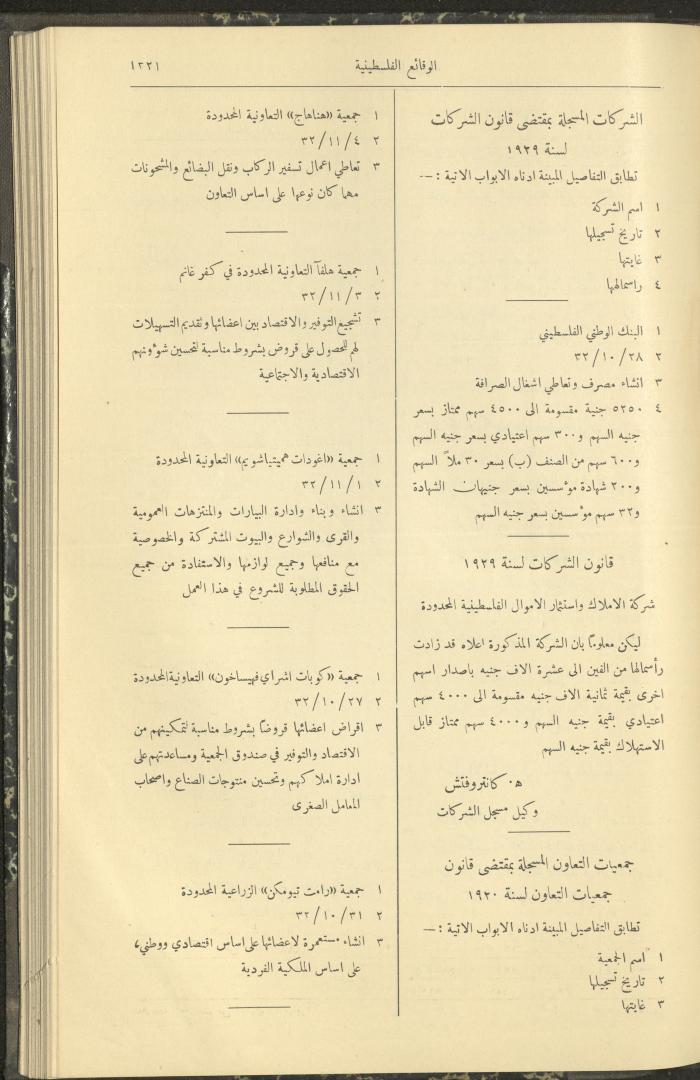 الوقائع الفلسطينية
١٣٢١
الشركات المسجلة بمقتضى قانون الشركات
لسنة ١٩٢٩
تطابق التفاصيل المبينة ادناه الابواب الاتية : —
١ اسم الشركة
٢ تاريخ تسجيلها
٣ غايتها
٤ راسمالها
١ البنك الوطني الفلسطيني
٢ ٢٨ / ١٠ / ٣٢
٣ انشاء مصرف وتعاطي اشغال الصرافة
٤ ٥٢٥٠ جنية مقسومة الى ٤٥٠٠ سهم ممتاز بسعر
جنيه السهم و٣٠٠ سهم اعتيادي بسعر جنيه السهم
و٦٠٠ سهم من الصنف (ب) بسعر ٣٠ ملاً السهم
و٢٠٠ شهادة مؤسسين بسعر جنيهان الشهادة
و٣٢ سهم مؤسسين بسعر جنيه السهم
قانون الشركات لسنة ١٩٢٩
شركة الاملاك واستثمار الاموال الفلسطينية المحدودة
ليكن معلوماً بان الشركة المذكورة اعلاه قد زادت
رأسمالها من الفين الى عشرة الاف جنيه باصدار اسهم
اخرى بقيمة ثمانية الاف جنيه مقسومة الى ٤٠٠٠ سهم
اعتيادي بقيمة جنيه السهم و٤٠٠٠ سهم ممتاز قابل
الاستهلاك بقيمة جنيه السهم
ه. كانتروفتش
وكيل مسجل الشركات
جمعيات التعاون المسجلة بمقتضى قانون
جمعيات التعاون لسنة ١٩٢٠
تطابق التفاصيل المبينة ادناه الابواب الاتية : —
١ اسم الجمعية
٢ تاريخ تسجيلها
٣ غايتها
١ جمعية «هناهاج» التعاونية المحدودة
٢ ٤ / ١١ / ٣٢
٣ تعاطي اعمال تسفير الركاب ونقل البضائع والمشحونات
مهما كان نوعها على اساس التعاون
١ جمعية هلفآ التعاونية المحدودة في كفر غانم
٢ ٣ / ١١ / ٣٢
٣ تشجيع التوفير والاقتصاد بين اعضائها وتقديم التسهيلات
لهم للحصول على قروض بشروط مناسبة لتحسين شؤونهم
الاقتصادية والاجتماعية
١ جمعية «اغودات هميتياشويم» التعاونية المحدودة
٢ ١ / ١١ / ٣٢
٣ انشاء وبناء وادارة البيارات والمنتزهات العمومية
والقرى والشوارع والبيوت المشتركة والخصوصية
مع منافعها وجميع لوازمها والاستفادة من جميع
الحقوق المطلوبة للشروع في هذا العمل
١ جمعية «كوبات اشراي فهيساخون» التعاونية المحدودة
٢ ٢٧ / ١٠ / ٣٢
٣ اقراض اعضائها قروضاً بشروط مناسبة لتمكينهم من
الاقتصاد والتوفير في صندوق الجمعية ومساعدتهم على
ادارة املاكهم وتحسين منتوجات الصناع واصحاب
المعامل الصغرى
١ جمعية «رامت تيومكن» الزراعية المحدودة
٢ ٣١ / ١٠ / ٣٢
٣ انشاء مستعمرة لاعضائها على اساس اقتصادي ووطني،
على اساس الملكية الفردية